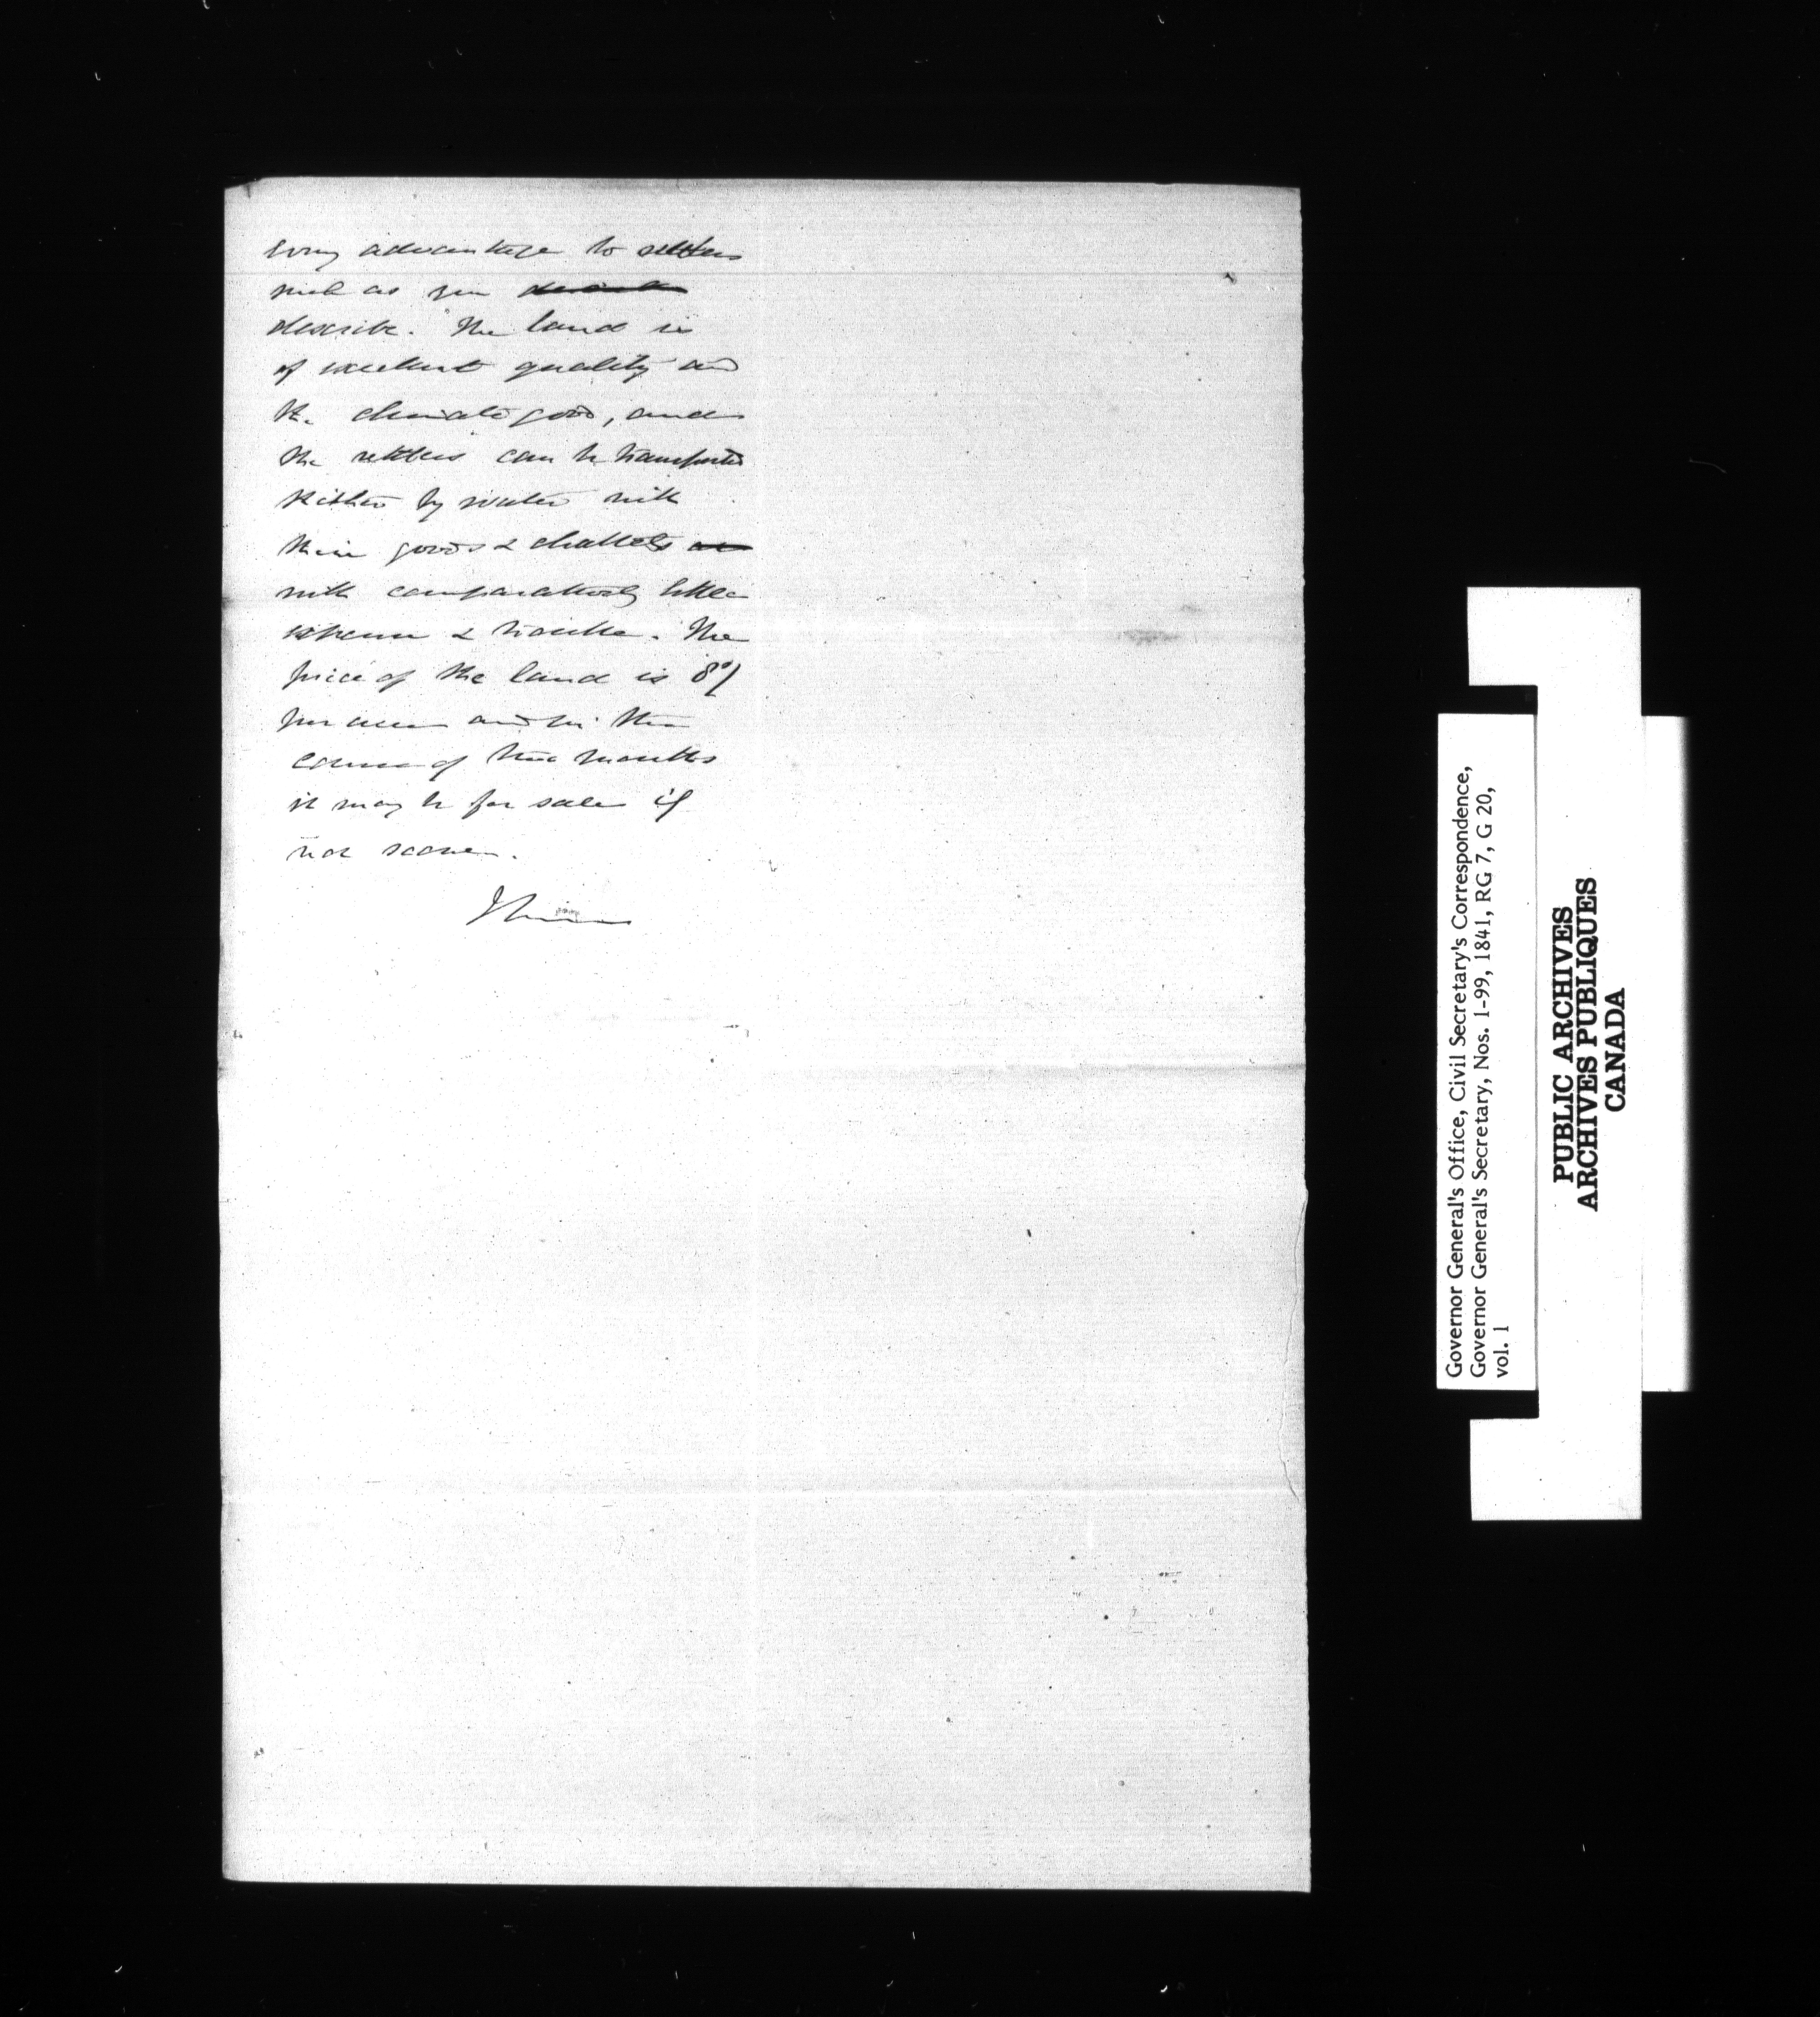 every advantage to settlers
such as you
describe. The land is
of excellent quality and
the climate good, and
the settlers can be transported
thither by water with
their goods & chattels
with comparatively little
expense & trouble. The
price of the land is 8/
per acre and in the
course of two months
it may be for sale if
not sooner.
Governor General's Office, Civil Secretary's Correspondence,
Governor General's Secretary, Nos. 1-99, 1841, RG 7, G 20,
vol. 1
PUBLIC ARCHIVES
ARCHIVES PUBLIQUES
CANADA